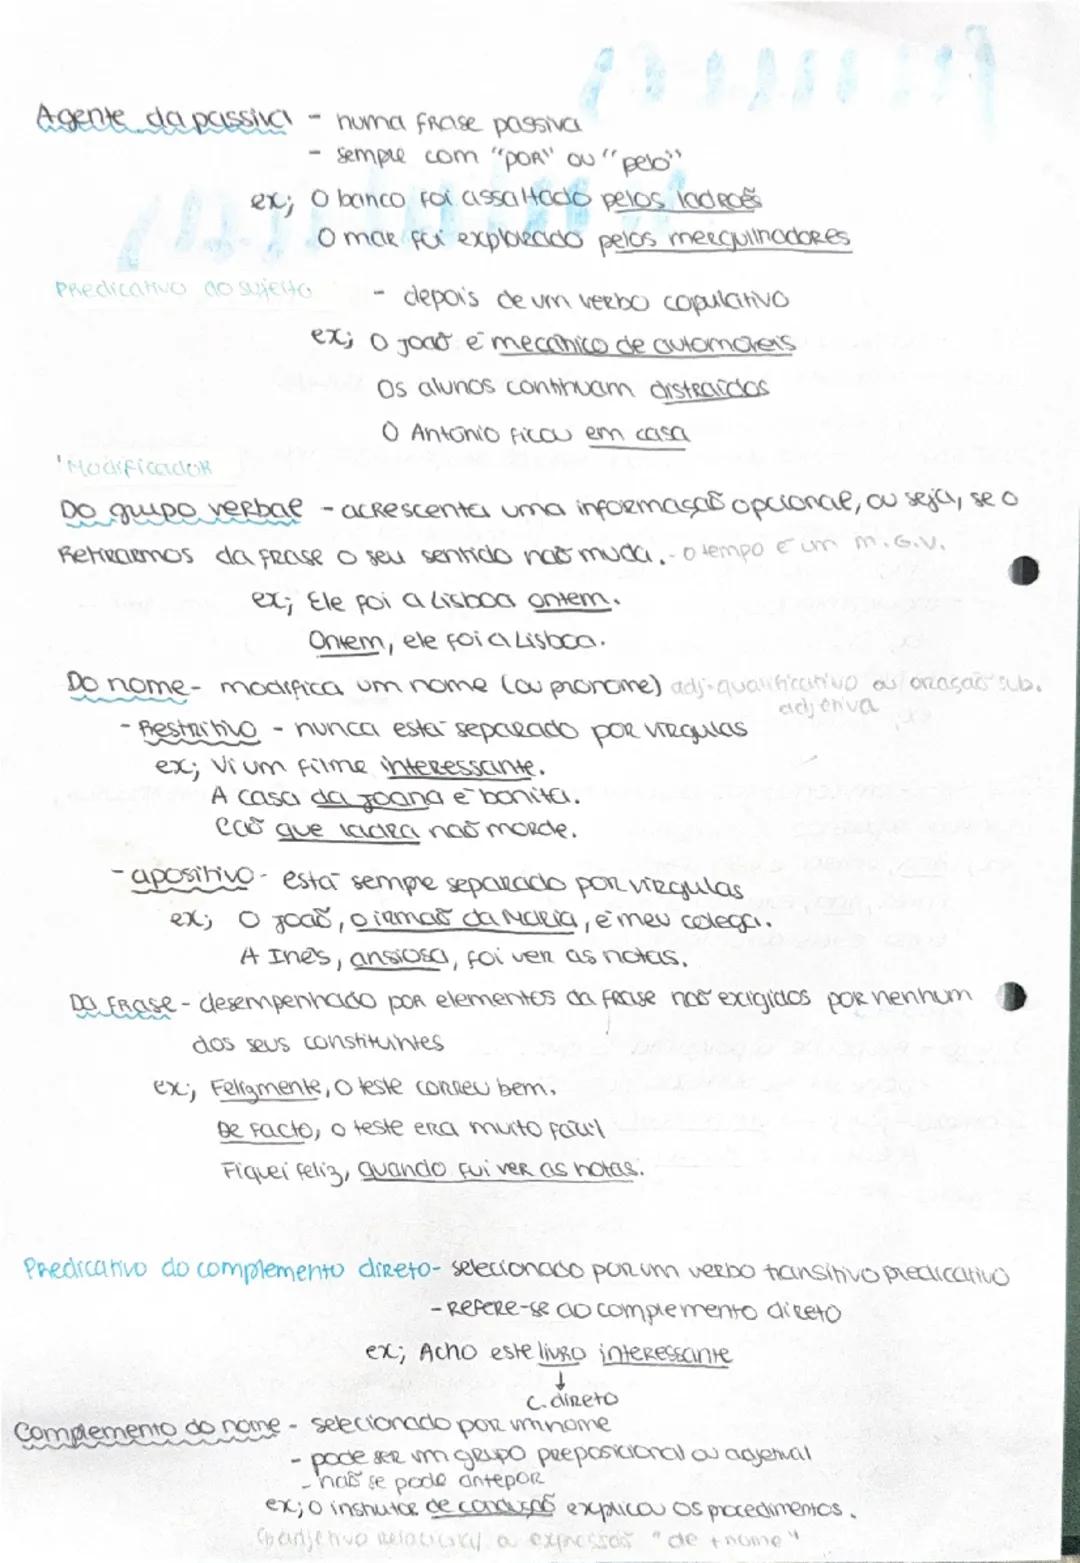 Agente da passiva - numa frase passiva
- sempre com "por" ou "pelo"
ex; O banco foi assaltado pelos ladrões
O mar foi explorado pelos mergulhadores
Predicativo do sujeito - depois de um verbo copulativo
ex; O João é mecânico de automóveis
Os alunos continuam distraídos
O António ficou em casa
Modificador
Do grupo verbal - acrescenta uma informação opcional, ou seja, se o
retirarmos da frase o seu sentido não muda. - o tempo é um m.G.V.
ex; Ele foi a Lisboa ontem.
Ontem, ele foi a Lisboa.
Do nome - modifica um nome (ou pronome) adj. qualificativo ou oração sub.
adjetiva
- Restritivo - nunca está separado por vírgulas
ex; Vi um filme interessante.
A casa da Joana é bonita.
Cão que ladra não morde.
- apositivo - está sempre separado por vírgulas
ex; O João, o irmão da Maria, é meu colega.
A Inês, ansiosa, foi ver as notas.
Da frase - desempenhado por elementos da frase não exigidos por nenhum
dos seus constituintes
ex; Felizmente, o teste correu bem.
De facto, o teste era muito fácil
Fiquei feliz, quando fui ver as notas.
Predicativo do complemento direto - selecionado por um verbo transitivo predicativo
- Refere-se ao complemento direto
ex; Acho este livro interessante
↓
c. direto
Complemento do nome - selecionado por um nome
- pode ser um grupo preposicional ou adjetival
- não se pode antepor
ex; O instrutor de condução explicou os procedimentos.
adjetivo relacional a expressão "de + nome"